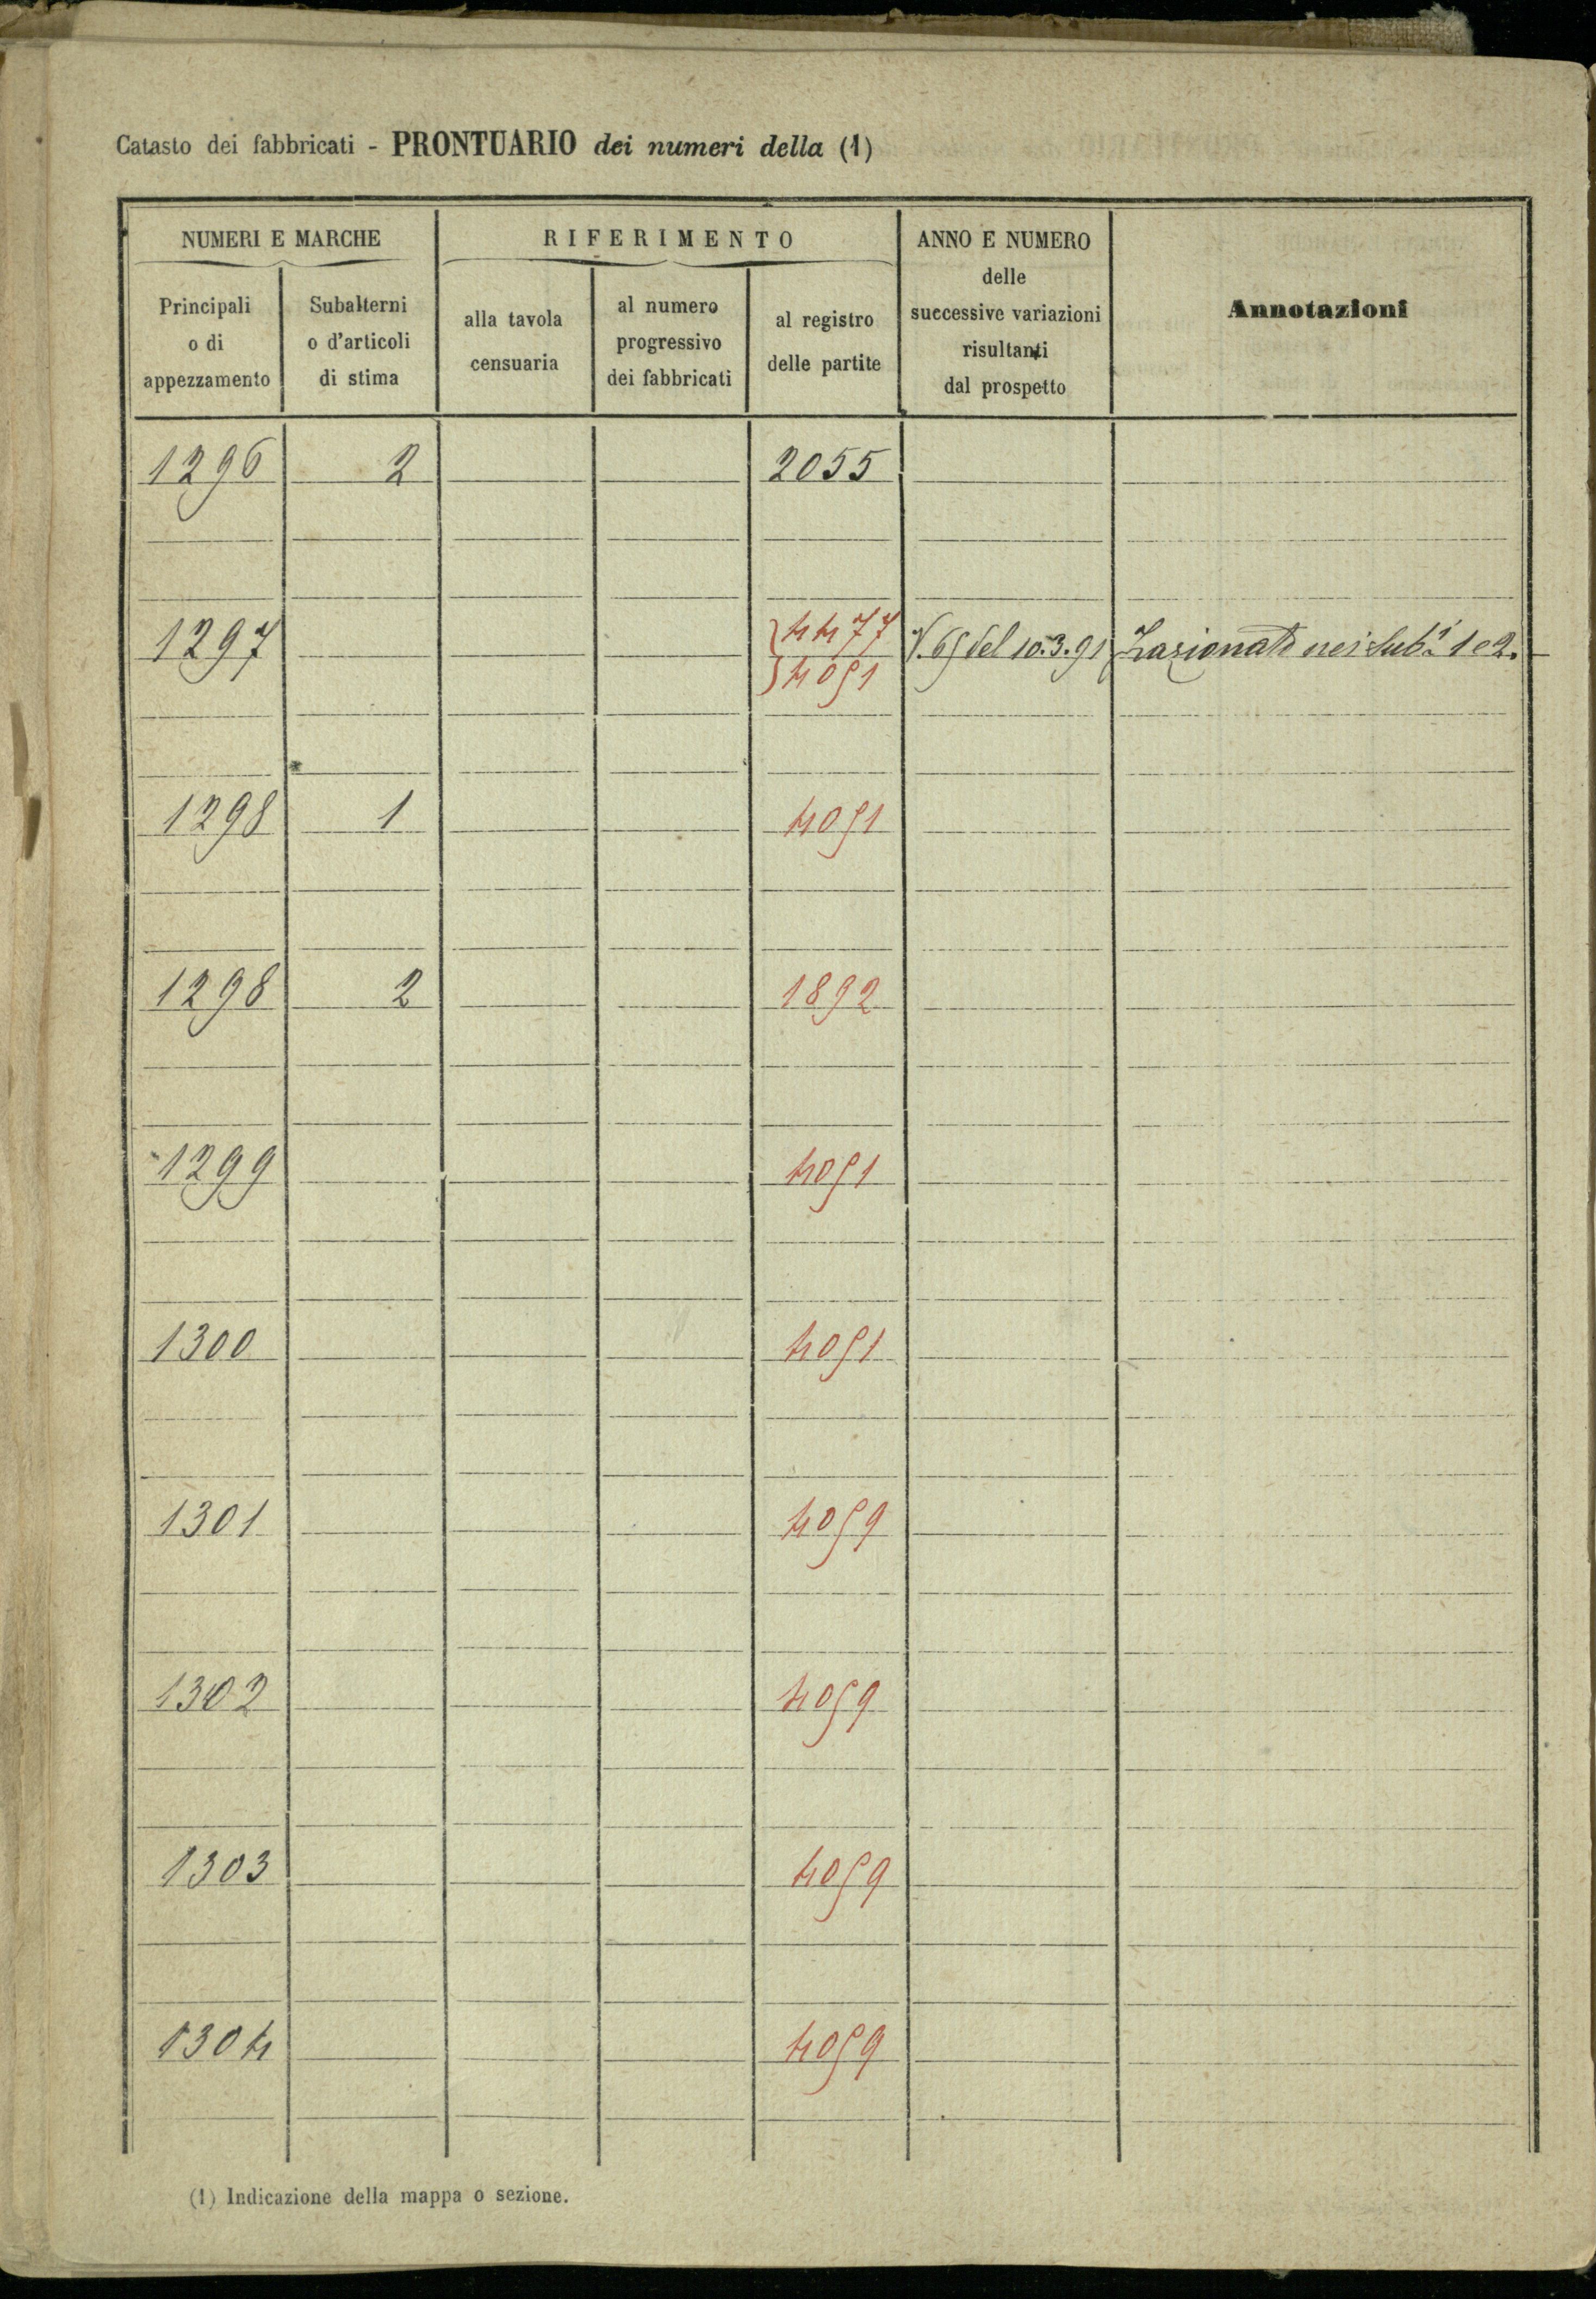 Catasto dei fabbricati - PRONTUARIO dei numeri della (1)
NUMERI E MARCHE
RIFERIMENTO
ANNO E NUMERO
delle
successive variazioni
risultanti
dal prospetto
Annotazioni
Principali
o di
appezzamento
Subalterni
o d'articoli
di stima
alla tavola
censuaria
al numero
progressivo
dei fabbricati
al registro
delle partite
1296 2 2055
4477
1297 V. 65 del 10.3.91 nei Sub.i 1 e 2.
4051
1298 1 4051
1298 2 1892
1299 4051
1300 4051
1301 4059
1302 4059
1303 4059
1304 4059
(1) Indicazione della mappa o sezione.